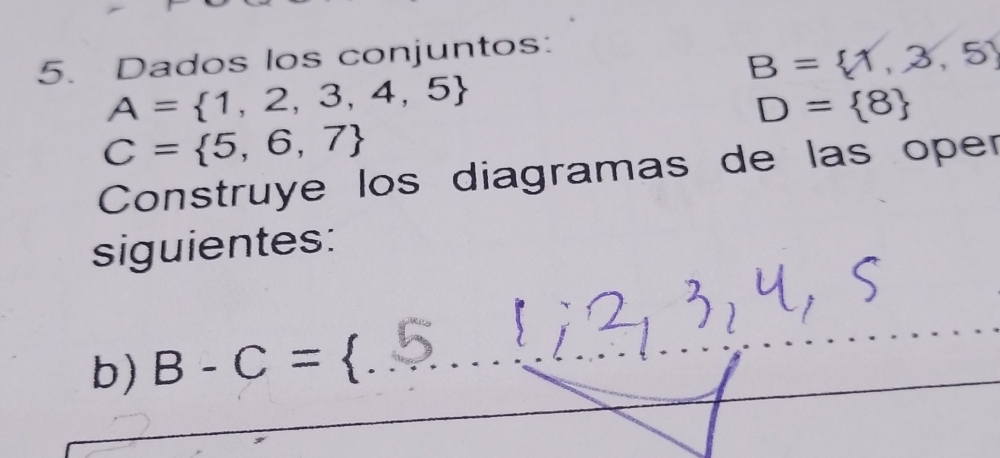 5. Dados los conjuntos:
A = {1, 2, 3, 4, 5}
B = {1, 3, 5}
C = {5, 6, 7}
D = {8}
Construye los diagramas de las oper
siguientes:
b) B - C = {. 5 1, 2, 3, 4, 5